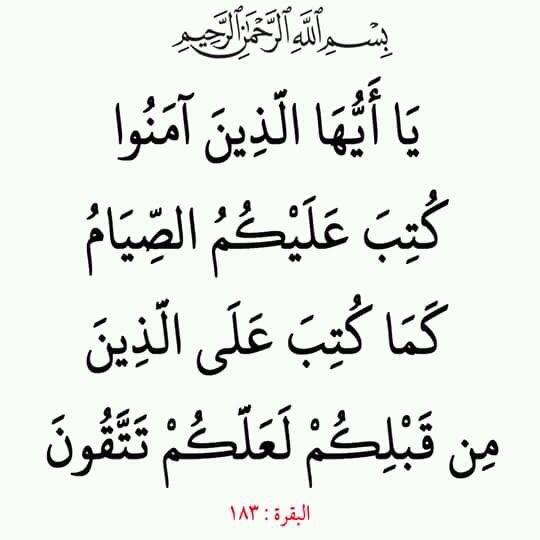 بِسْمِ اللَّهِ الرَّحْمَٰنِ الرَّحِيمِ
يَا أَيُّهَا الَّذِينَ آمَنُوا
كُتِبَ عَلَيْكُمُ الصِّيَامُ
كَمَا كُتِبَ عَلَى الَّذِينَ
مِن قَبْلِكُمْ لَعَلَّكُمْ تَتَّقُونَ
البقرة : ١٨٣